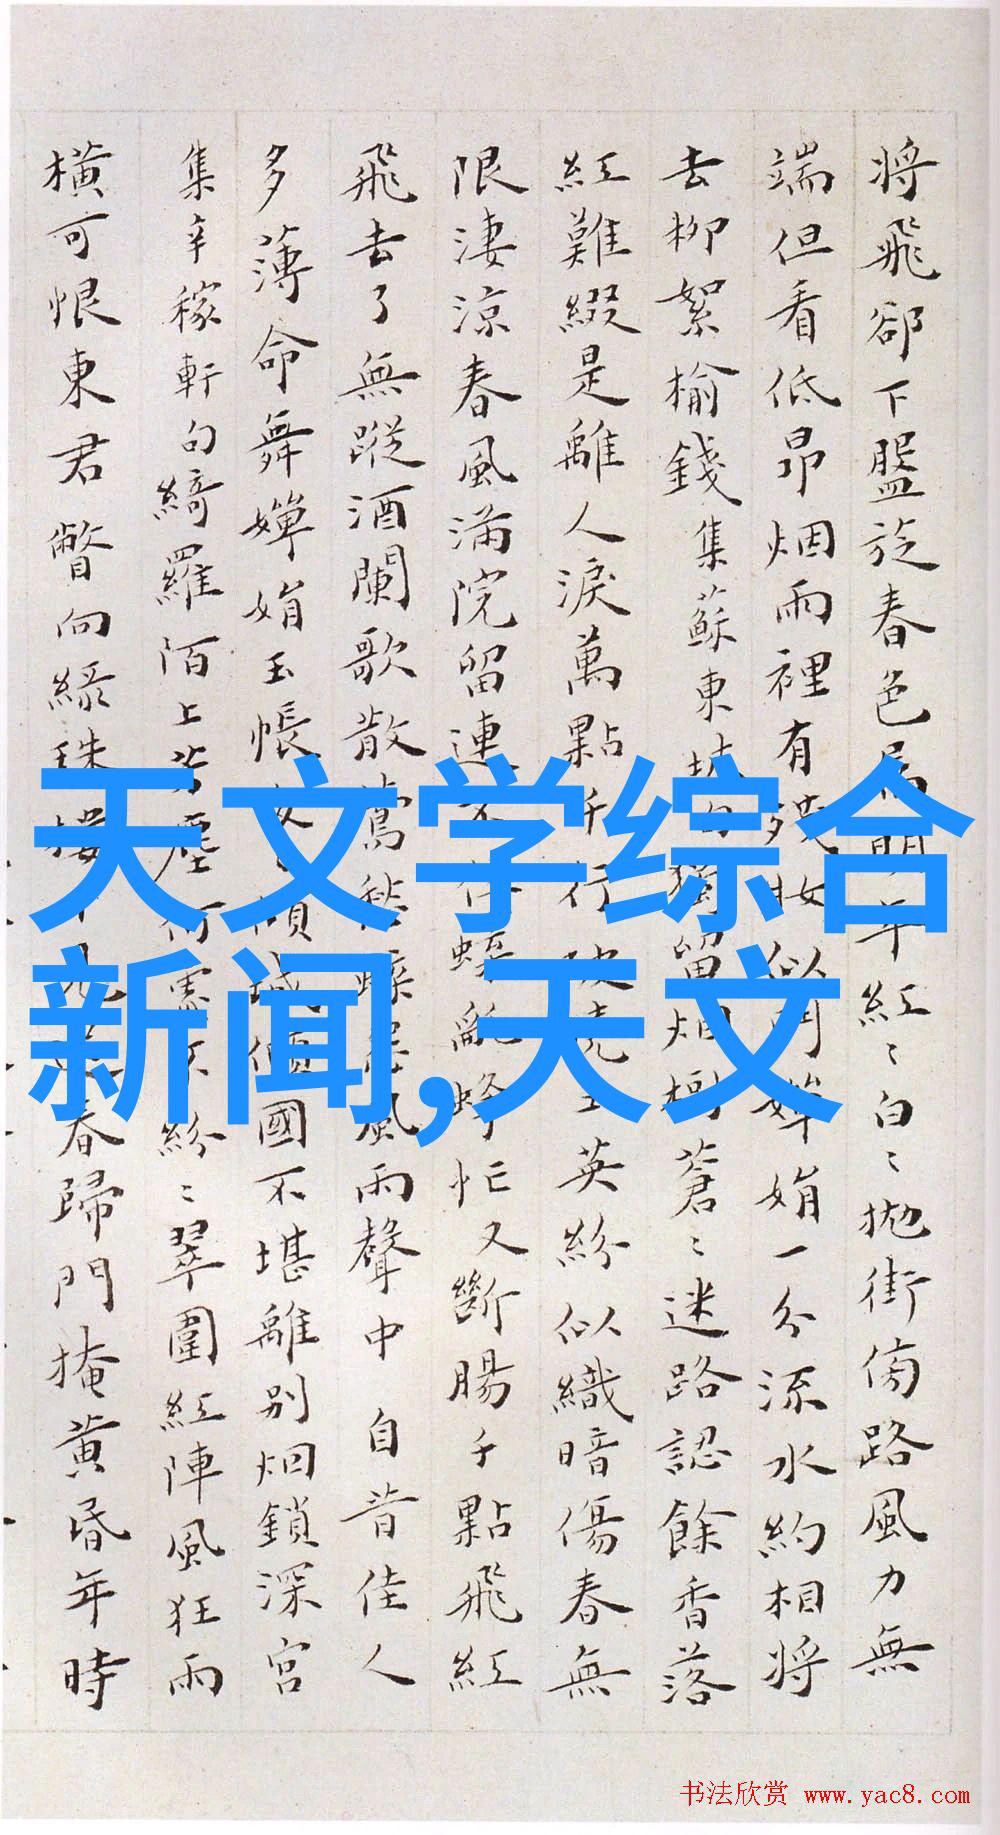 將飛卻下盤旋春色屬明年紅〻白〻拋街傍路風力無
端但看低昂烟雨裡有
似開嬋娟一分流水約相將
去柳絮榆錢集蘇東坡句
獨留烟樹蒼〻迷路認餘香落
紅難綴是離人淚萬點千行
英紛似織暗傷春無
限淒涼春風滿院留連
蜂忙又斷腸千點飛紅
飛去了無蹤酒闌歌散鶯愁蝶怨風雨聲中自昔佳人
多薄命舞嬋娟玉帳
傾城傾國不堪離別烟鎖深宮
集辛稼軒句綺羅陌上芳塵
紛〻翠圍紅陣風狂雨
橫可恨東君瞥向綠珠樓
春歸門掩黃昏年時
天文学综合
新闻,天文
书法欣赏 www.yac8.com